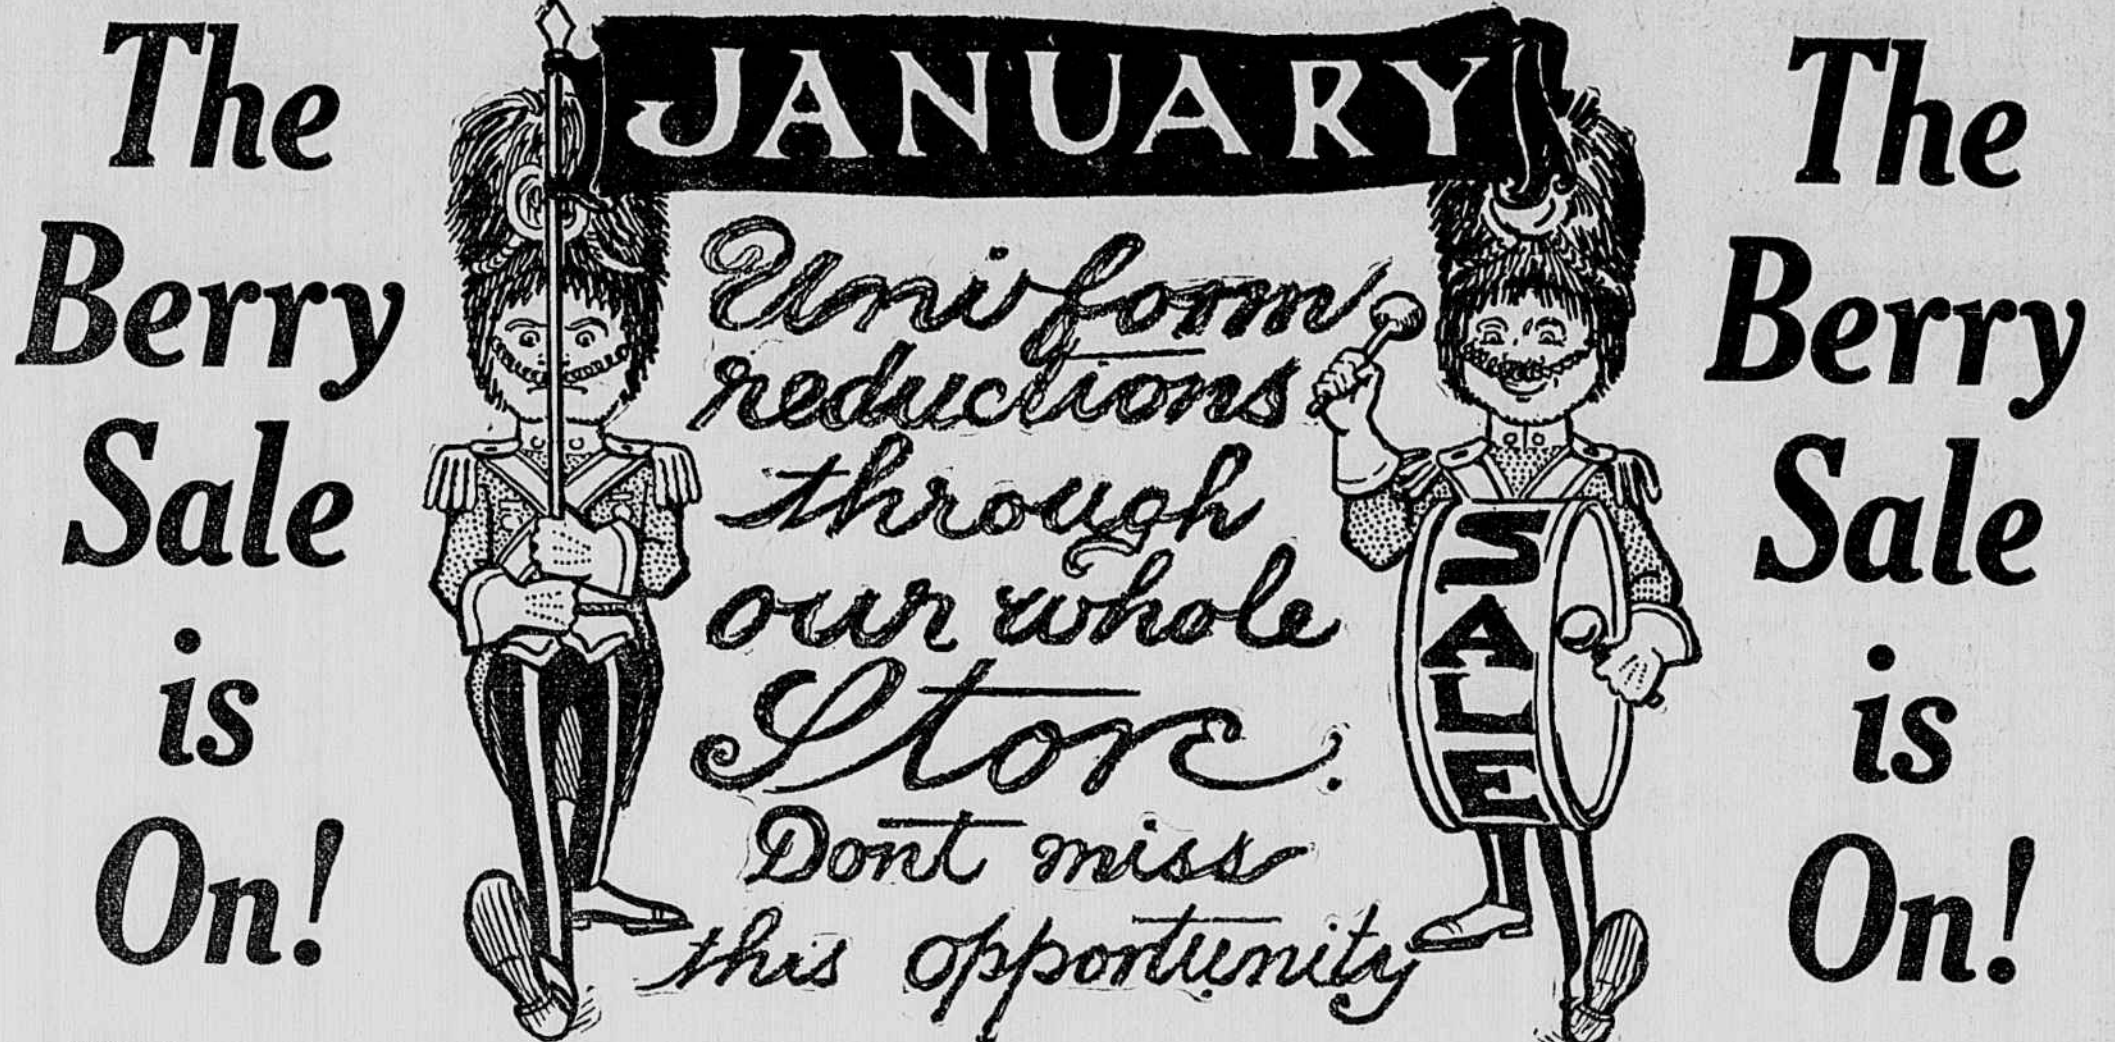 The
Berry
Sale
is
On!
JANUARY
Uniform
reductions
through
our whole
Store.
Dont miss
this opportunity
SALE
The
Berry
Sale
is
On!